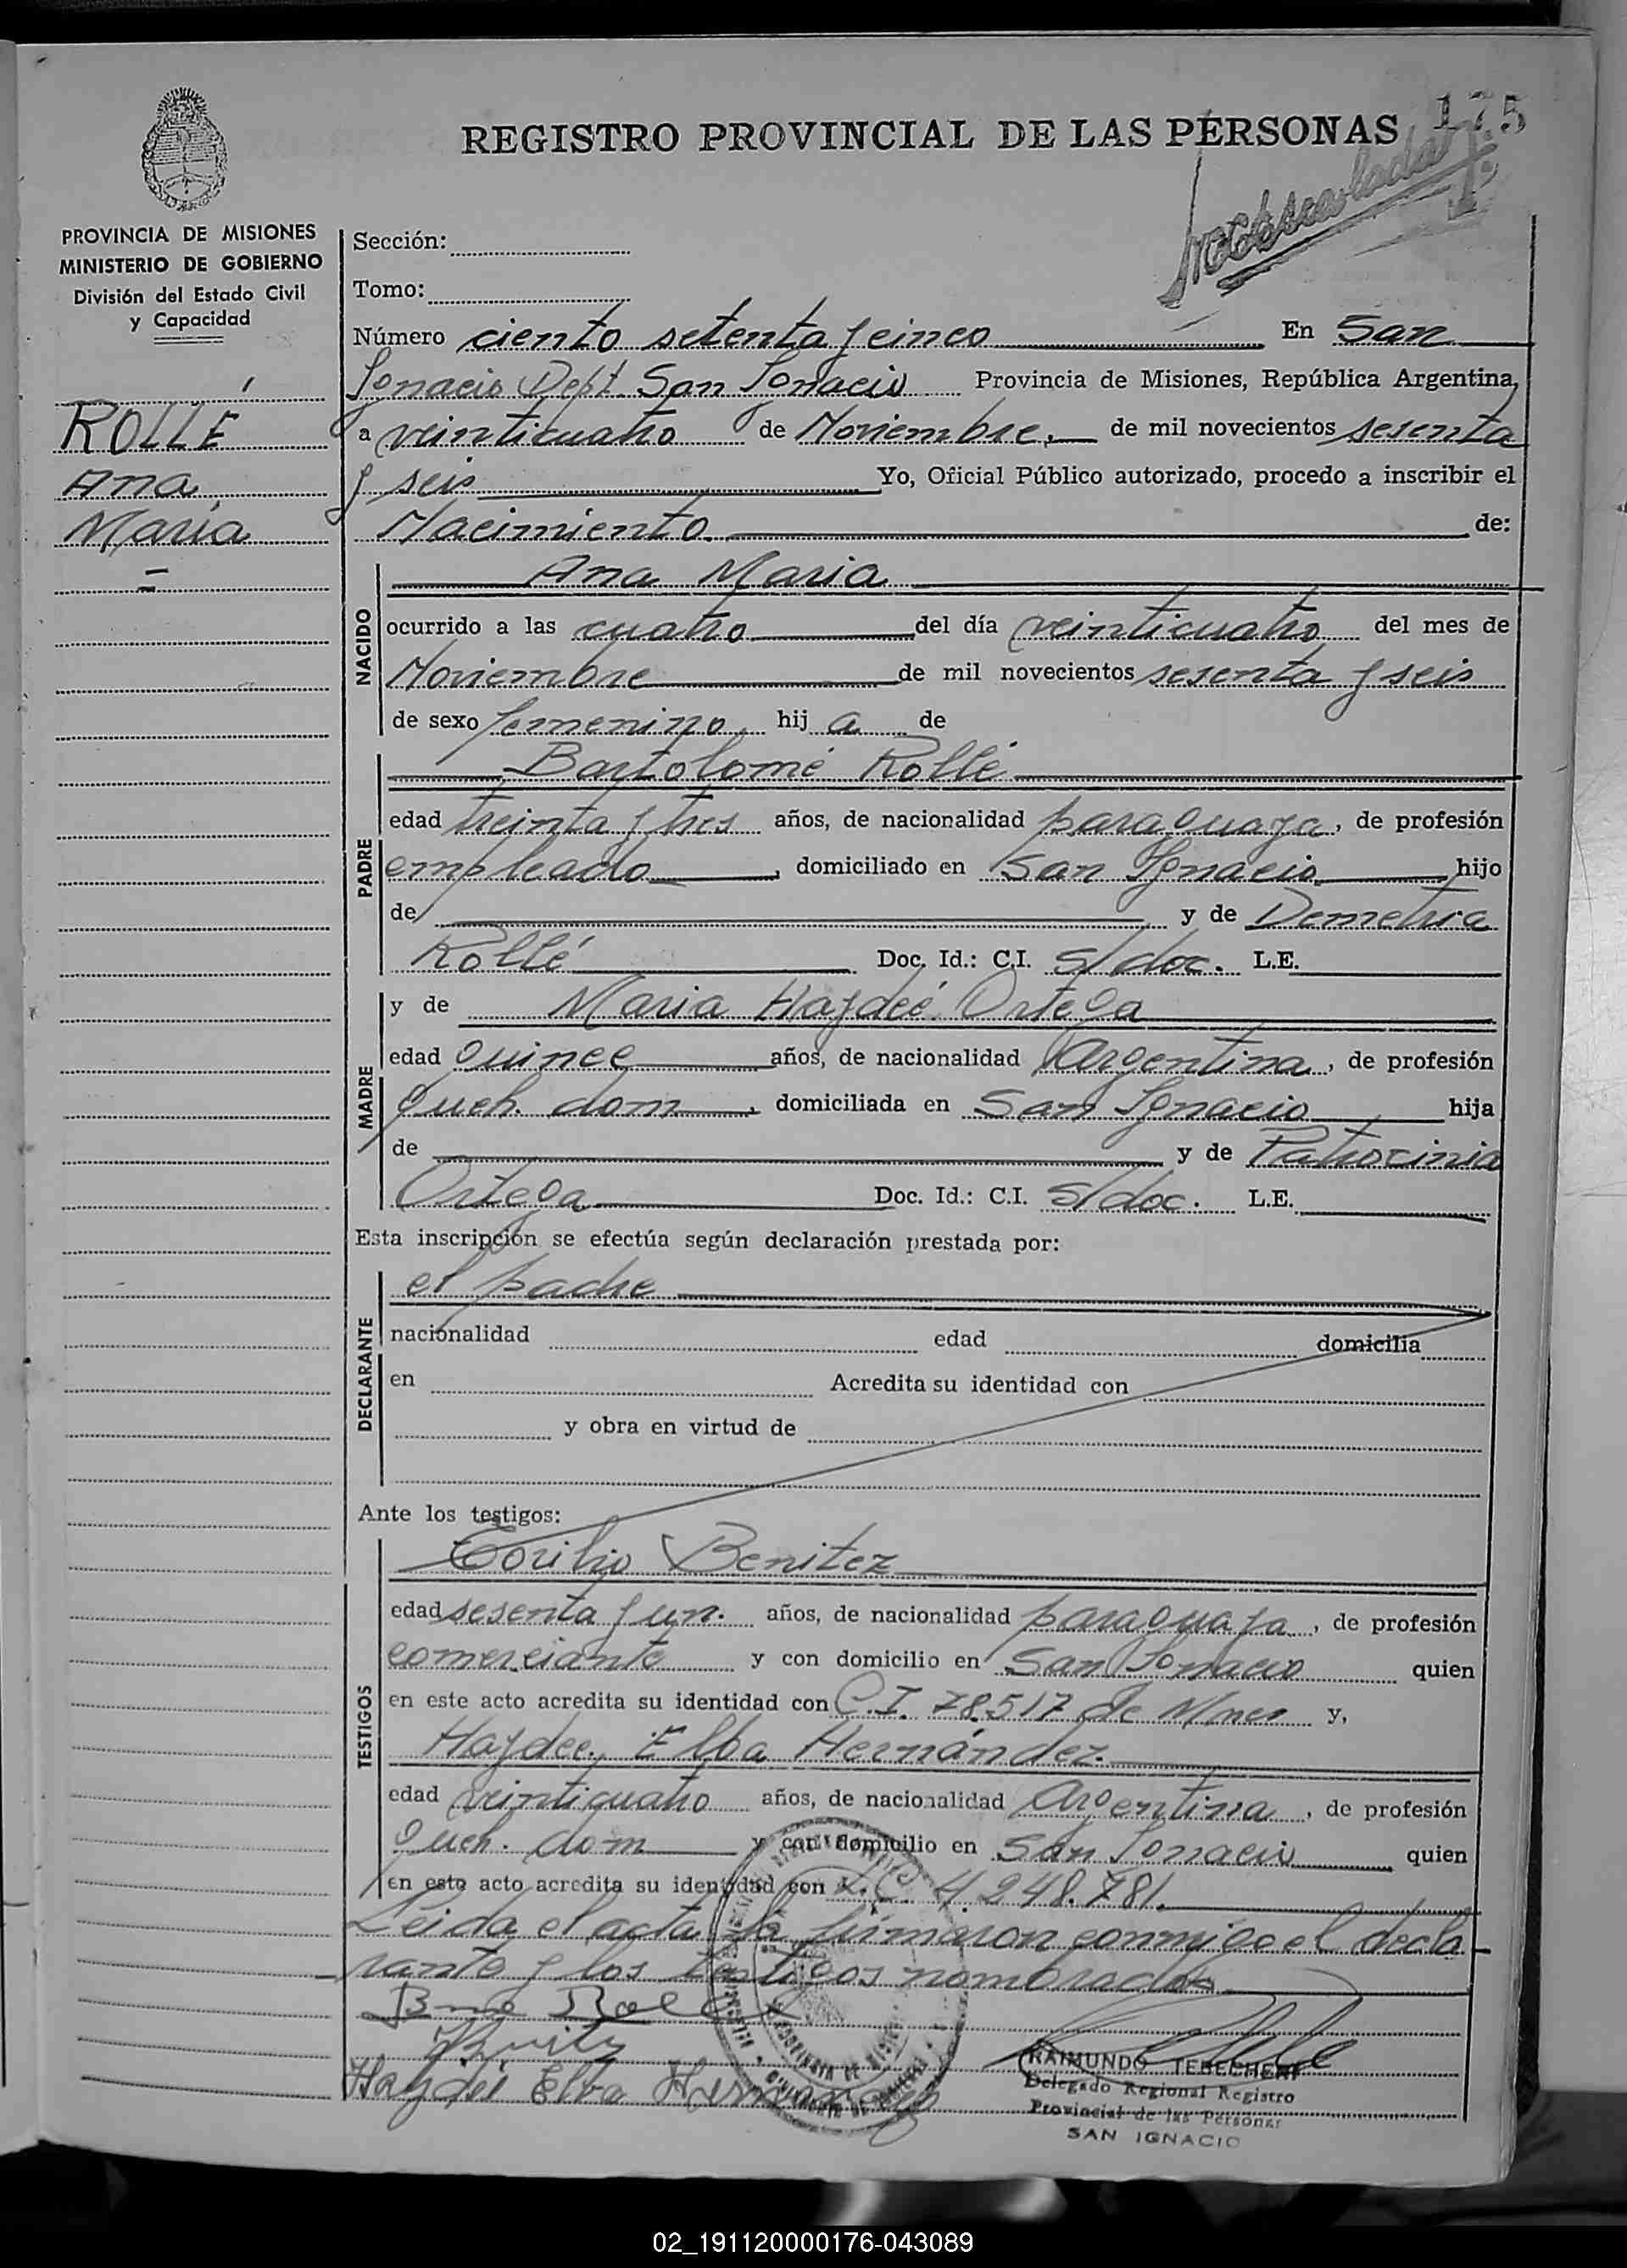 175
REGISTRO PROVINCIAL DE LAS PERSONAS
PROVINCIA DE MISIONES
MINISTERIO DE GOBIERNO
División del Estado Civil
y Capacidad
ROLLÉ
Ana
Maria
Sección:
Tomo:
Número ciento setenta y cinco En San
Ignacio Dept. San Ignacio Provincia de Misiones, República Argentina,
a veinticuatro de Noviembre, de mil novecientos sesenta
y seis Yo, Oficial Público autorizado, procedo a inscribir el
Nacimiento de:
NACIDO
Ana Maria
ocurrido a las cuatro del día veinticuatro del mes de
Noviembre de mil novecientos sesenta y seis
de sexo femenino, hij a de
PADRE
Bartolomé Rollé
edad treinta y tres años, de nacionalidad paraguaya, de profesión
empleado, domiciliado en San Ignacio hijo
de y de Demetria
Rollé Doc. Id.: C.I. s/doc. L.E.
MADRE
y de Maria Haydeé Ortega
edad quince años, de nacionalidad Argentina, de profesión
queh. dom, domiciliada en San Ignacio hija
de y de Patrocinia
Ortega Doc. Id.: C.I. s/doc. L.E.
Esta inscripción se efectúa según declaración prestada por:
DECLARANTE
el padre
nacionalidad edad domicilia
en Acredita su identidad con
y obra en virtud de
Ante los testigos:
TESTIGOS
Toribio Benitez
edad sesenta y un. años, de nacionalidad paraguaya, de profesión
comerciante y con domicilio en San Ignacio quien
en este acto acredita su identidad con C.I. 78.517 de Mnes y,
Haydee, Elba Hernández.
edad veinticuatro años, de nacionalidad Argentina, de profesión
queh. dom y con domicilio en San Ignacio quien
en este acto acredita su identidad con L.C. 4.248.781.
Leida el acta la firmaron conmigo el decla
rante y los testigos nombrados
Haydeé Elba Hernandez
RAIMUNDO TEBECHERI
Delegado Regional Registro
Provincial de las Personas
SAN IGNACIO
02_191120000176-043089